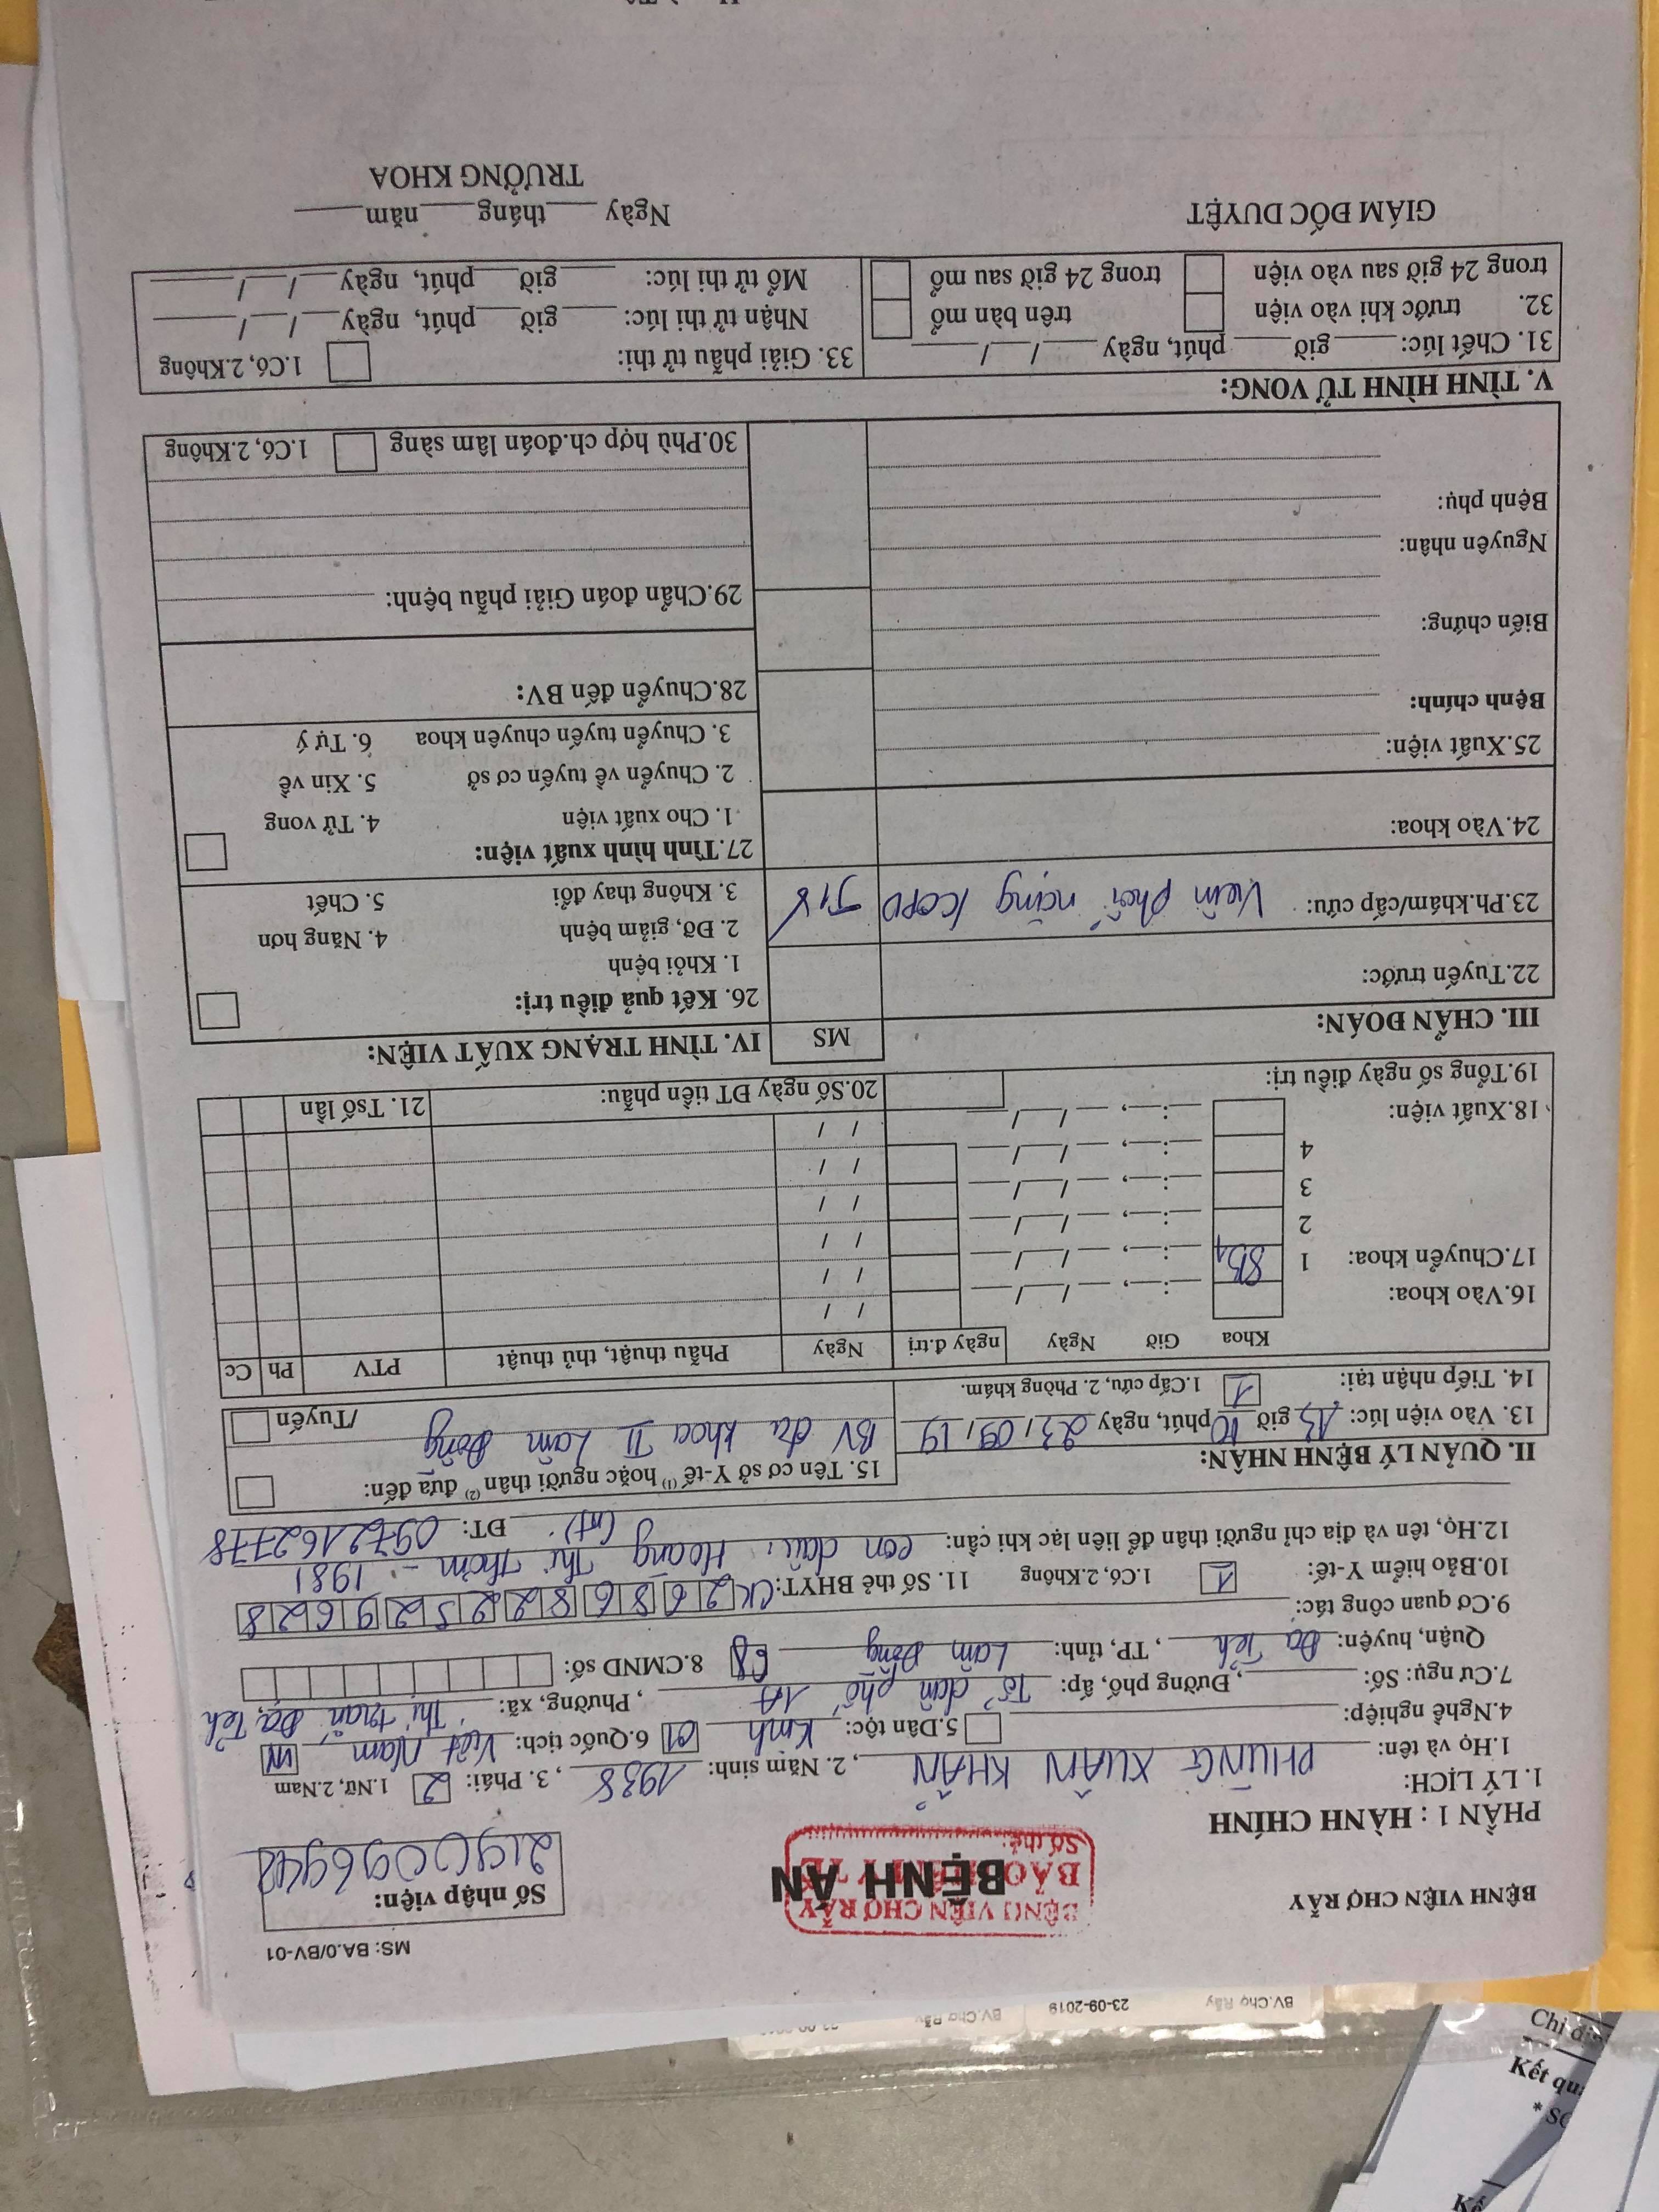 BV.Chợ Rẫy 23-09-2019 BV.Chợ Rẫy
MS: BA.0/BV-01
BỆNH VIỆN CHỢ RẪY
BỆNH VIỆN CHỢ RẪY
BỆNH ÁN
Số thẻ:
Số nhập viện:
PHẦN 1 : HÀNH CHÍNH
1. LÝ LỊCH:
1.Họ và tên: PHÙNG XUÂN KHẨN, 2. Năm sinh: 1938, 3. Phái: 2 1.Nữ, 2.Nam
4.Nghề nghiệp: 5.Dân tộc: Kinh 01 6.Quốc tịch: Việt Nam VN
7.Cư ngụ: Số: , Đường phố, ấp: Tổ dân phố 1A , Phường, xã: Thị trấn Đạ Tẻh
Quận, huyện: Đạ Tẻh , TP, tỉnh: Lâm Đồng 68 8.CMND số:
9.Cơ quan công tác:
10.Bảo hiểm Y-tế: 1 1.Có, 2.Không 11. Số thẻ BHYT: CK 2 6 8 6 8 2 2 5 2 9 6 2 8
12.Họ, tên và địa chỉ người thân để liên lạc khi cần: con dâu: Hoàng Thị Thơm - 1981
(nt) ĐT: 0972162778
II. QUẢN LÝ BỆNH NHÂN:
13. Vào viện lúc: 13 giờ 10 phút, ngày 23/09/19
14. Tiếp nhận tại: 1 1.Cấp cứu, 2. Phòng khám.
15. Tên cơ sở Y-tế (1) hoặc người thân (2) đưa đến:
BV đa khoa II Lâm Đồng
/Tuyến
Khoa Giờ Ngày ngày đ.trị Ngày Phẫu thuật, thủ thuật PTV Ph Cc
16.Vào khoa: __:__, __/__/__ / /
17.Chuyển khoa: 1 8B1 __:__, __/__/__ / /
2 __:__, __/__/__ / /
3 __:__, __/__/__ / /
4 __:__, __/__/__ / /
18.Xuất viện: __:__, __/__/__ / /
19.Tổng số ngày điều trị: 20.Số ngày ĐT tiền phẫu: 21. Tsố lần
III. CHẨN ĐOÁN: MS
22.Tuyến trước:
23.Ph.khám/cấp cứu: Viêm phổi nặng /COPD J18
24.Vào khoa:
25.Xuất viện:
Bệnh chính:
Biến chứng:
Nguyên nhân:
Bệnh phụ:
IV. TÌNH TRẠNG XUẤT VIỆN:
26. Kết quả điều trị:
1. Khỏi bệnh
2. Đỡ, giảm bệnh 4. Năng hơn
3. Không thay đổi 5. Chết
27.Tình hình xuất viện:
1. Cho xuất viện 4. Tử vong
2. Chuyển về tuyến cơ sở 5. Xin về
3. Chuyển tuyến chuyên khoa 6. Tự ý
28.Chuyển đến BV:
29.Chẩn đoán Giải phẫu bệnh:
30.Phù hợp ch.đoán lâm sàng 1.Có, 2.Không
V. TÌNH HÌNH TỬ VONG:
31. Chết lúc: giờ phút, ngày / /
32. trước khi vào viện trên bàn mổ
trong 24 giờ sau vào viện trong 24 giờ sau mổ
33. Giải phẫu tử thi: 1.Có, 2.Không
Nhận tử thi lúc: giờ phút, ngày / /
Mổ tử thi lúc: giờ phút, ngày / /
GIÁM ĐỐC DUYỆT
Ngày tháng năm
TRƯỞNG KHOA